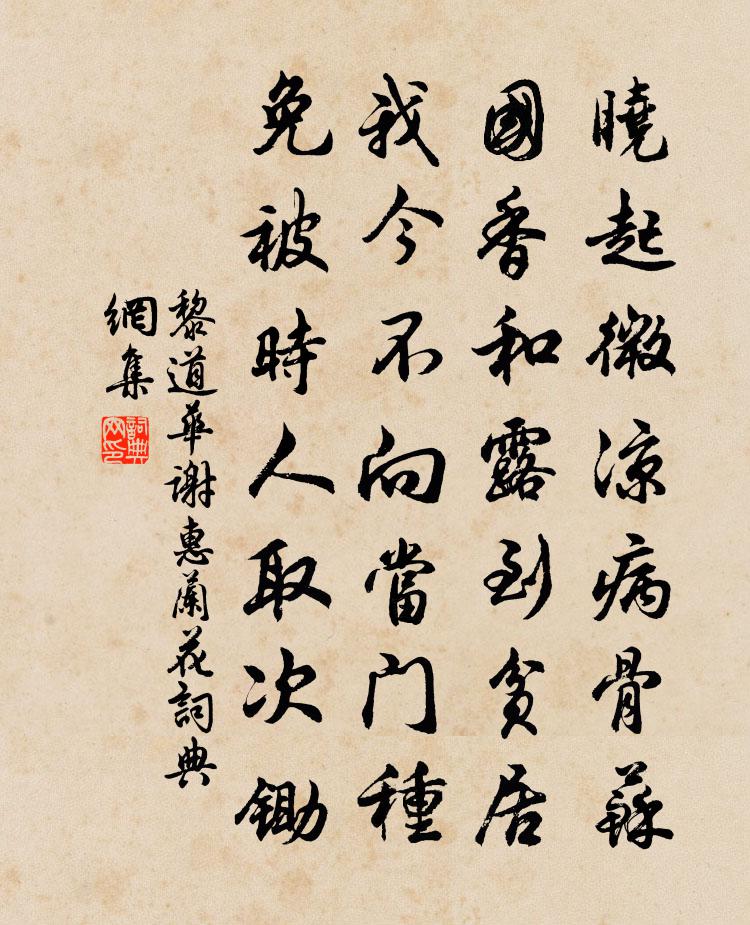 曉起微涼病骨蘇
國香和露到貧居
我今不向當門種
免被時人取次鋤
黎道華謝惠蘭花詞典
網集
詞典
网印